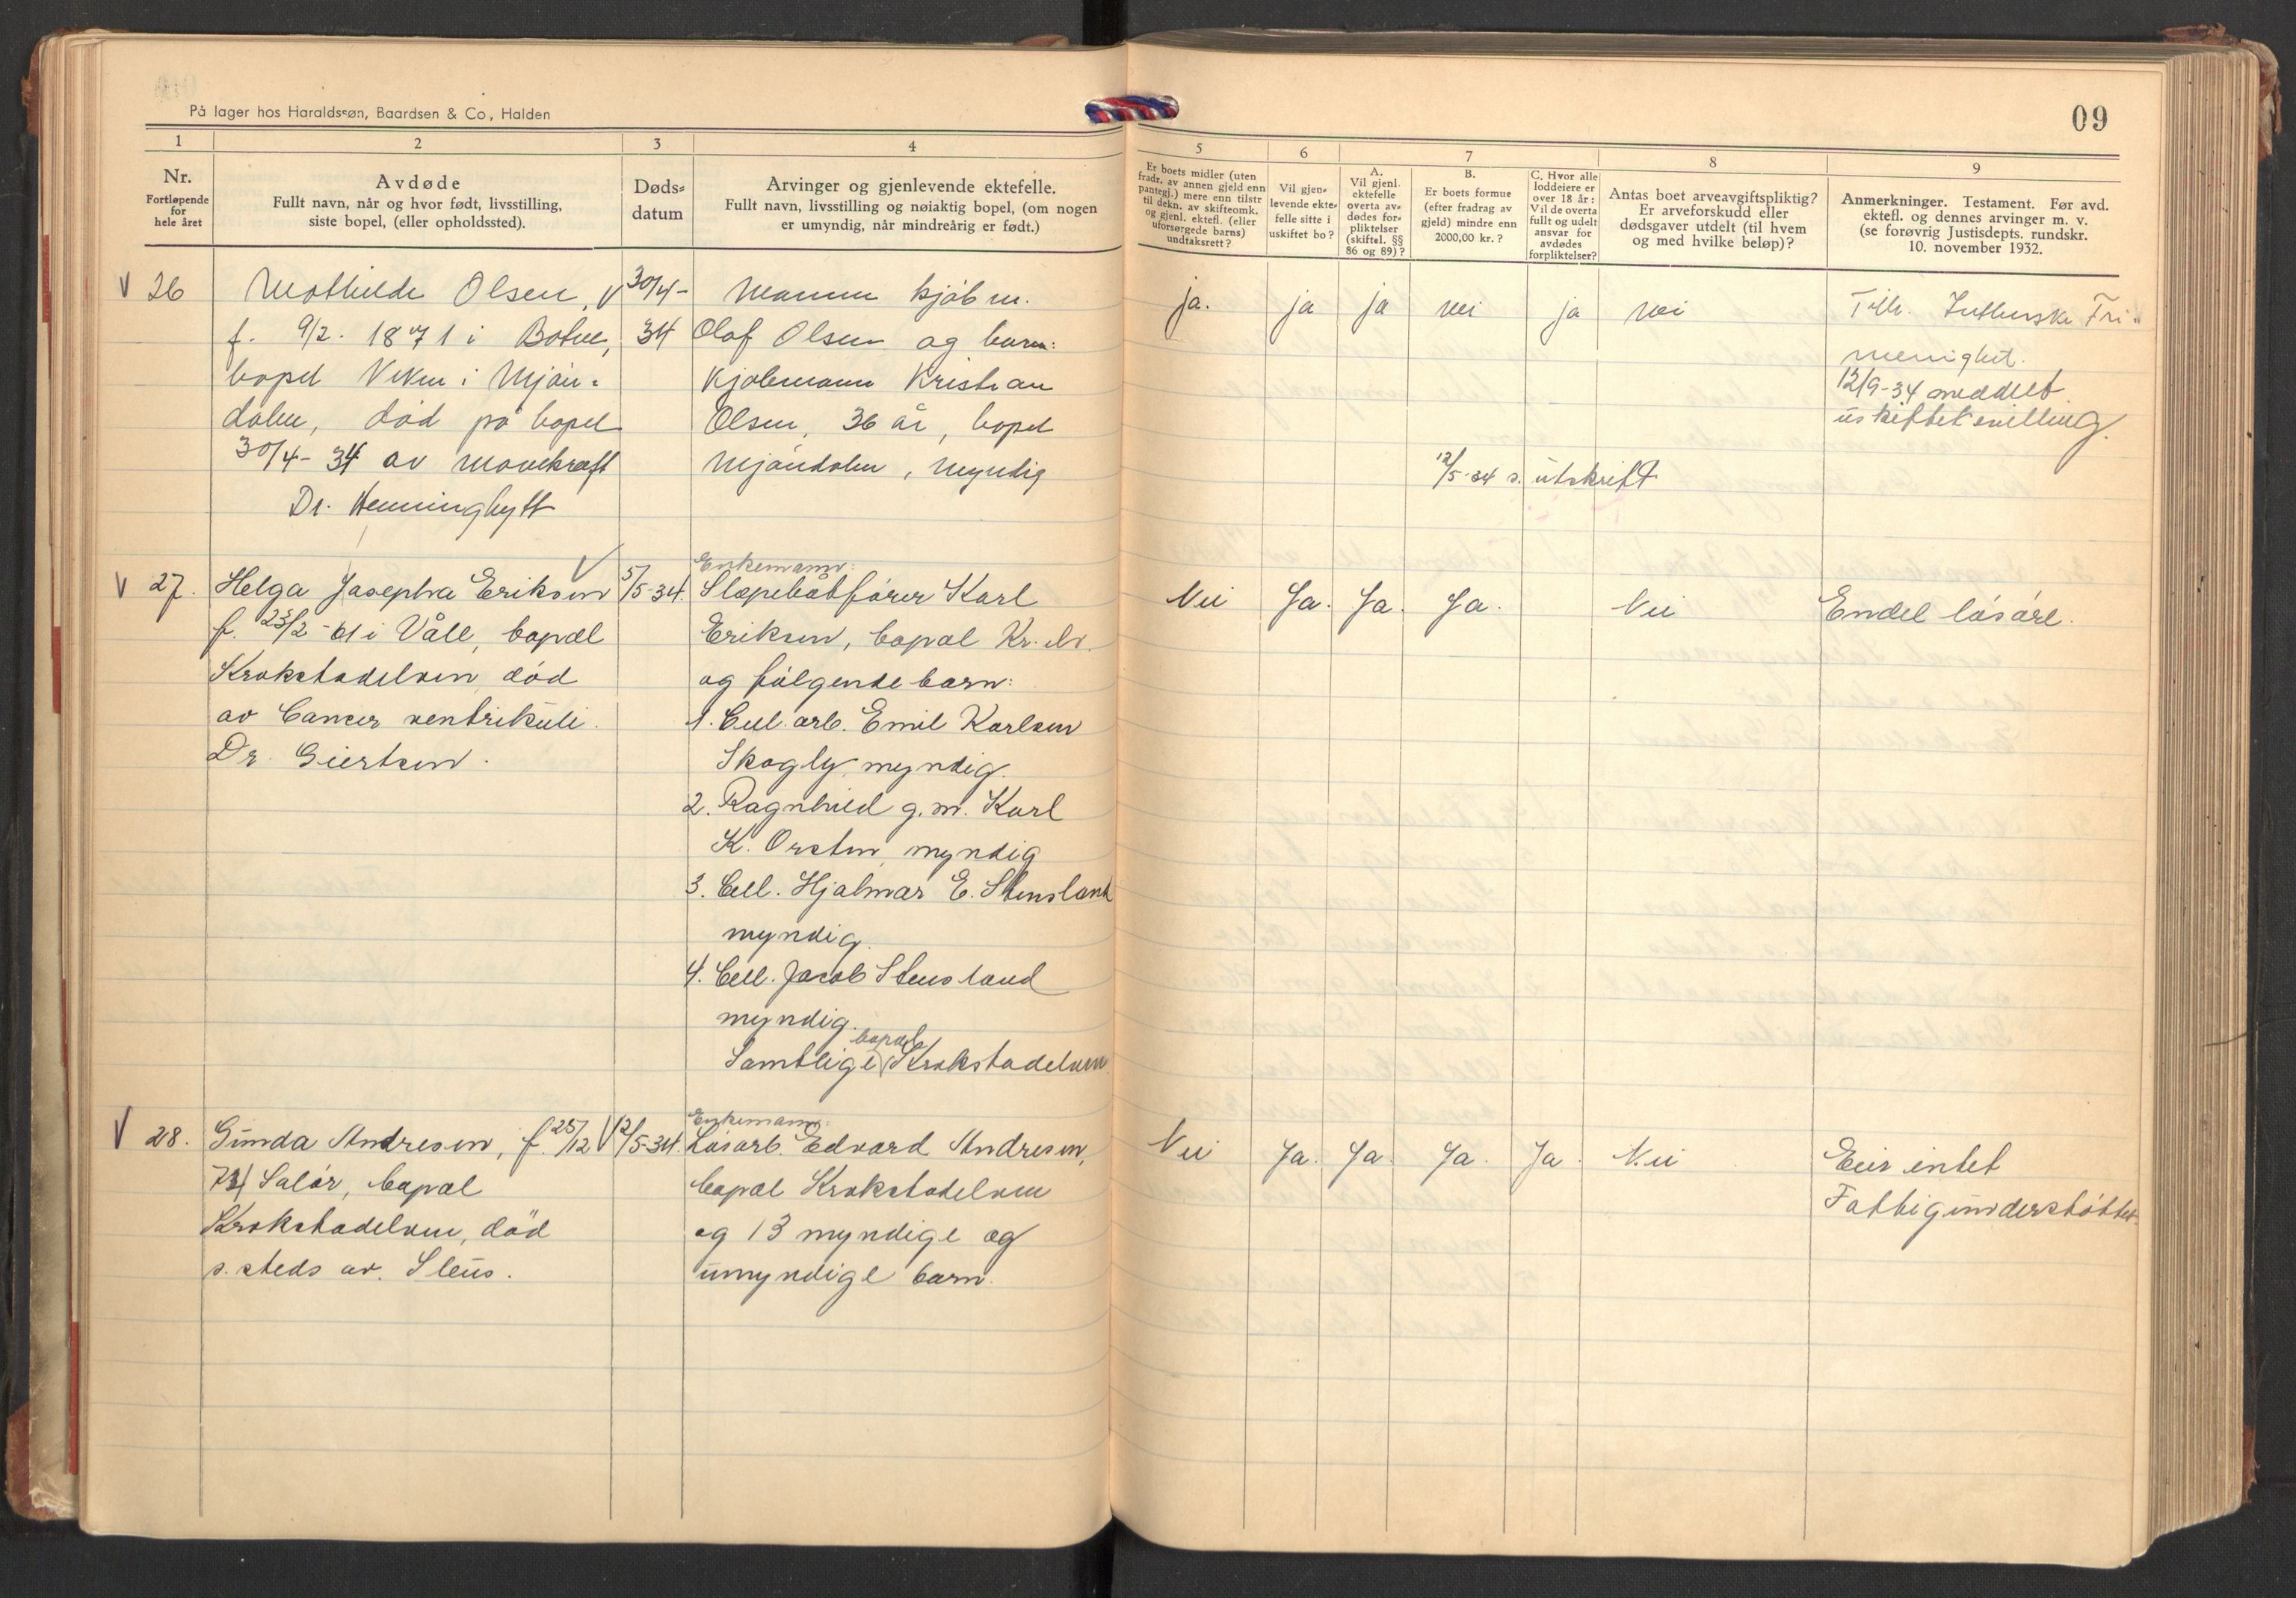 På lager hos Haraldssøn, Baardsen & Co, Halden
09
1
2
3
4
5
6
7
8
9
Nr.
Fortløpende
for
hele året
Avdøde
Fullt navn, når og hvor født, livsstilling,
siste bopel, (eller opholdssted).
Døds-
datum
Arvinger og gjenlevende ektefelle.
Fullt navn, livsstilling og nøiaktig bopel, (om nogen
er umyndig, når mindreårig er født.)
Er boets midler (uten
fradr. av annen gjeld enn
pantegj.) mere enn tilstr
til dekn. av skifteomk.
og gjenl. ektefl. (eller
uforsørgede barns)
undtaksrett?
Vil gjen-
levende ekte-
felle sitte i
uskiftet bo?
A.
Vil gjenl.
ektefelle
overta av-
dødes for-
pliktelser
(skiftel. §§
86 og 89)?
B.
Er boets formue
(efter fradrag av
gjeld) mindre enn
2000,00 kr.?
C. Hvor alle
loddeiere er
over 18 år:
Vil de overta
fullt og udelt
ansvar for
avdødes
forpliktelser?
Antas boet arveavgiftspliktig?
Er arveforskudd eller
dødsgaver utdelt (til hvem
og med hvilke beløp)?
Anmerkninger. Testament. Før avd.
ektefl. og dennes arvinger m. v.
(se forøvrig Justisdepts. rundskr.
10. november 1932.
V 26
Mathilde Olsen, V
f. 9/2. 1871 i Botne,
bopel Viken i Mjøn-
dalen, død på bopel
30/4-34 av mavekræft
Dr. Henninghytt
30/4-
34
Mannen kjøbm.
Olaf Olsen og barn:
Kjøbmann Kristian
Olsen, 36 år, bopel
Mjøndalen, myndig
ja.
ja
ja
nei
ja
nei
Tilh. Lutherske Fri-
menighet.
12/9-34 meddelt
uskiftet
12/5-34 s. utskrift
V 27.
Helga Josepha Eriksen
f. 23/2-61 i Våle, bopæl
Krokstadelven død
av Cancer ventrikuli.
Dr. Giertsen.
5/5-34.
Enkemann:
Slæpebåtfører Karl
Eriksen, bopæl Kr.elv.
og følgende barn:
1. Cell. arb. Emil Karlsen
Skogly, myndig.
2. Ragnhild g.m. Karl
K. Orsten, myndig
3. Cell. Hjalmar E. Stensland
myndig.
4. Cell. Jacob Stensland
myndig.
Samtlige bopæl Krokstadelven.
Nei
Ja.
Ja.
Ja.
Nei
Endel løsøre.
V 28.
Gunda Andresen, f. 25/12 V
73 i Solør, bopæl
Krokstadelven, død
s. steds av
12/5-34.
Enkemann:
Løsarb. Edvard Andresen,
bopæl Krokstadelven
og 13 myndige og
umyndige barn.
Nei
Ja.
Ja.
Ja.
Ja.
Nei
Eier intet
Fattigunderstøttet